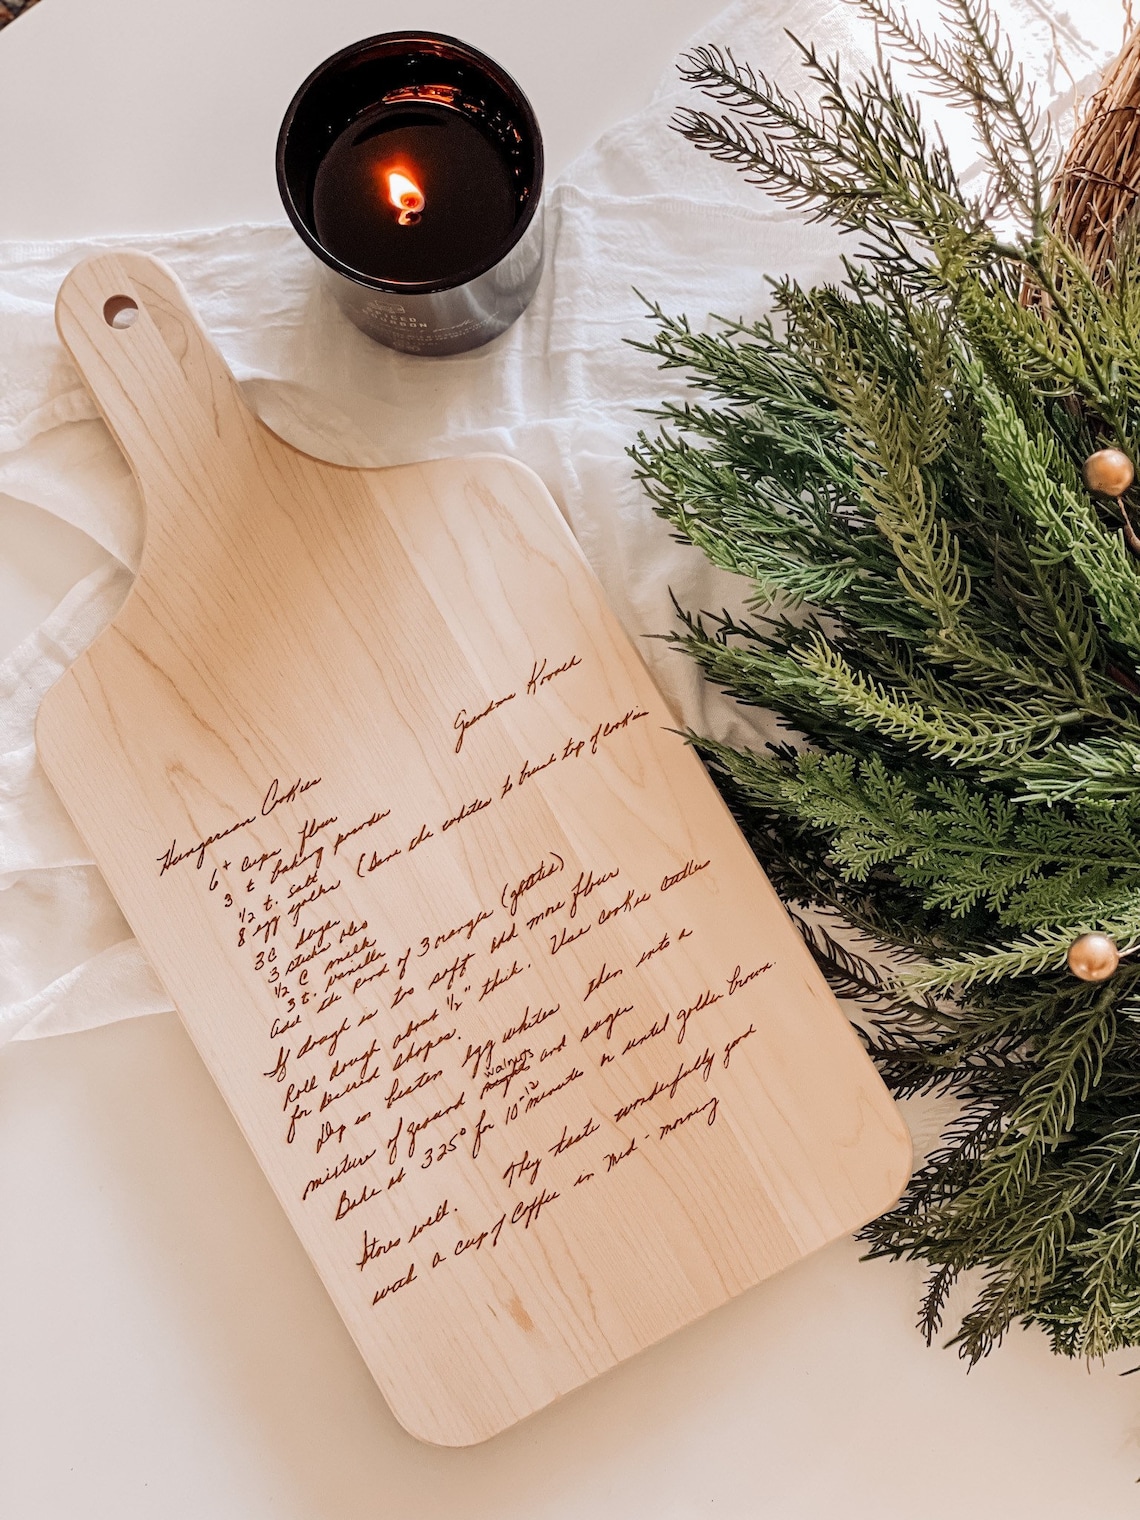 SPICED
BOURBON
Grandma
Hungarian Cookies
6+ cups flour
3 t baking powder
1/2 t. salt
8 egg yolks (save the whites to brush top of cookies
3 C sugar
3 sticks oleo
1/2 C milk
3 t. vanilla
add the rind of 3 oranges (grated)
If dough is too soft add more flour
Roll dough about 1/2" thick. Use cookie cutters
for desired shapes.
Dip in beaten egg whites then into a
mixture of ground walnuts and sugar
Bake at 325° for 10-12 minutes or until golden brown.
Stores well. They taste wonderfully good
with a cup of Coffee in mid-morning